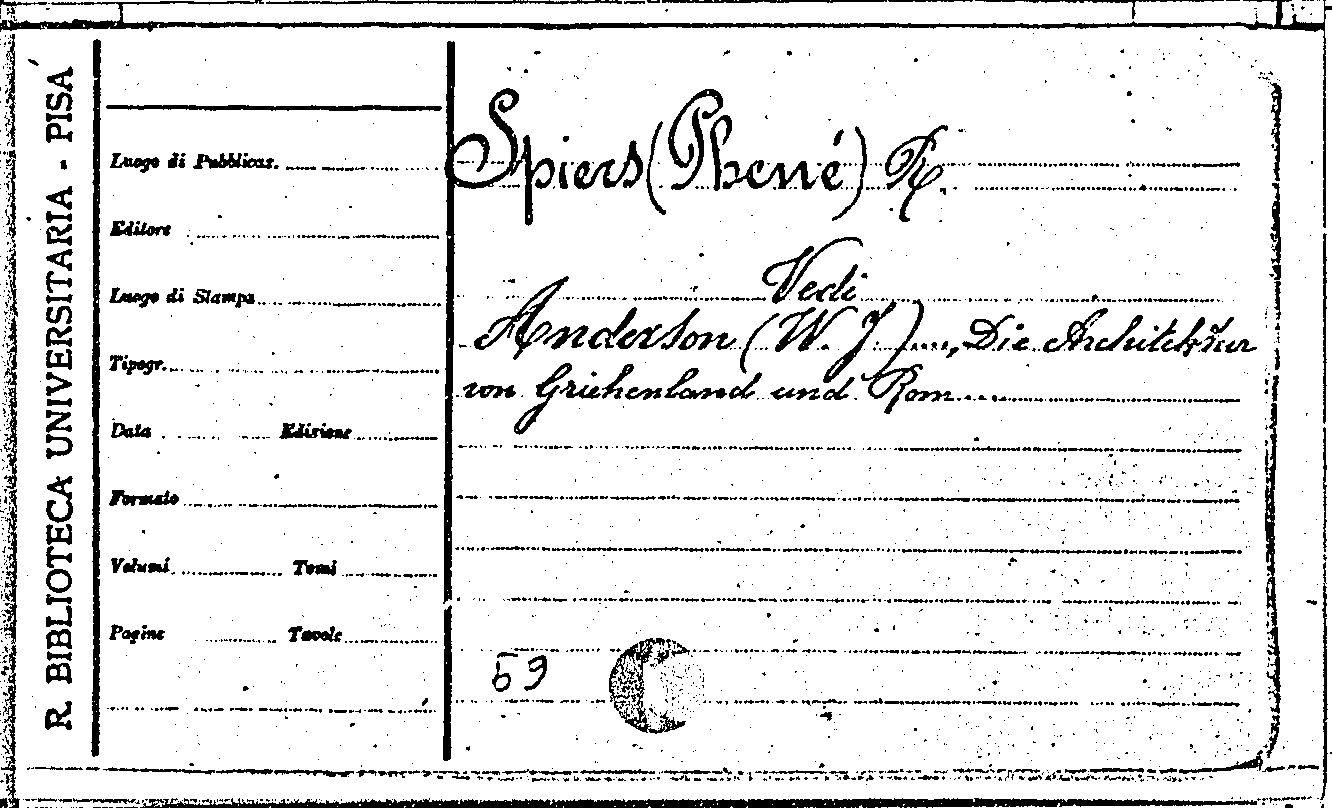 R. BIBLIOTECA UNIVERSITARIA - PISA
Luogo di Pubblicaz.
Editore
Luogo di Stampa
Tipogr.
Data Edizione
Formato
Volumi Tomi
Pagine Tavole
Spiers (Phené) R.
Vedi
Anderson (W. J.)..., Die Architektur
von Griehenland und Rom....
59